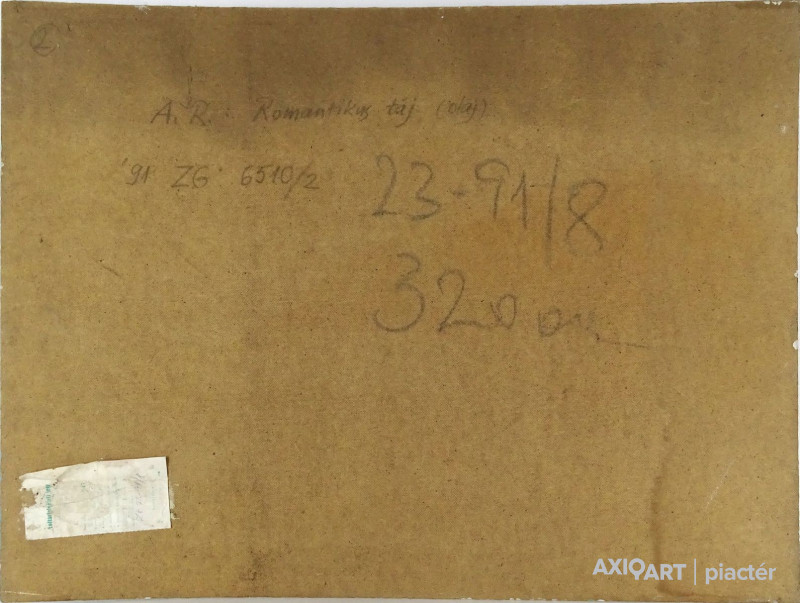 2
A. R. Romantikus táj (olaj)
'91 ZG 6510/2
23-91/8
AXIOART | piactér